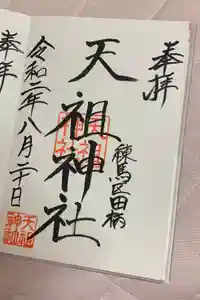 奉拝
練馬区田柄
天祖神社
天祖神社
令和二年八月二十日
天祖神社
奉拝